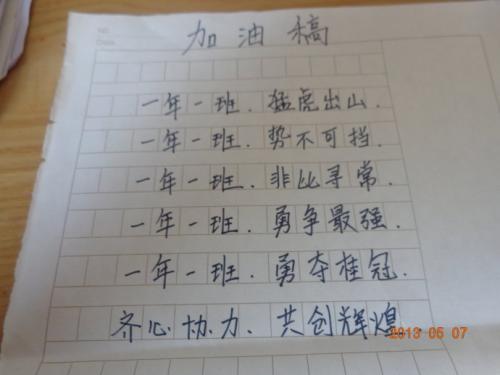 加油稿
一年一班．猛虎出山．
一年一班．势不可挡．
一年一班．非比寻常．
一年一班．勇争最强．
一年一班．勇夺桂冠．
齐心协力、共创辉煌
2013 05 07